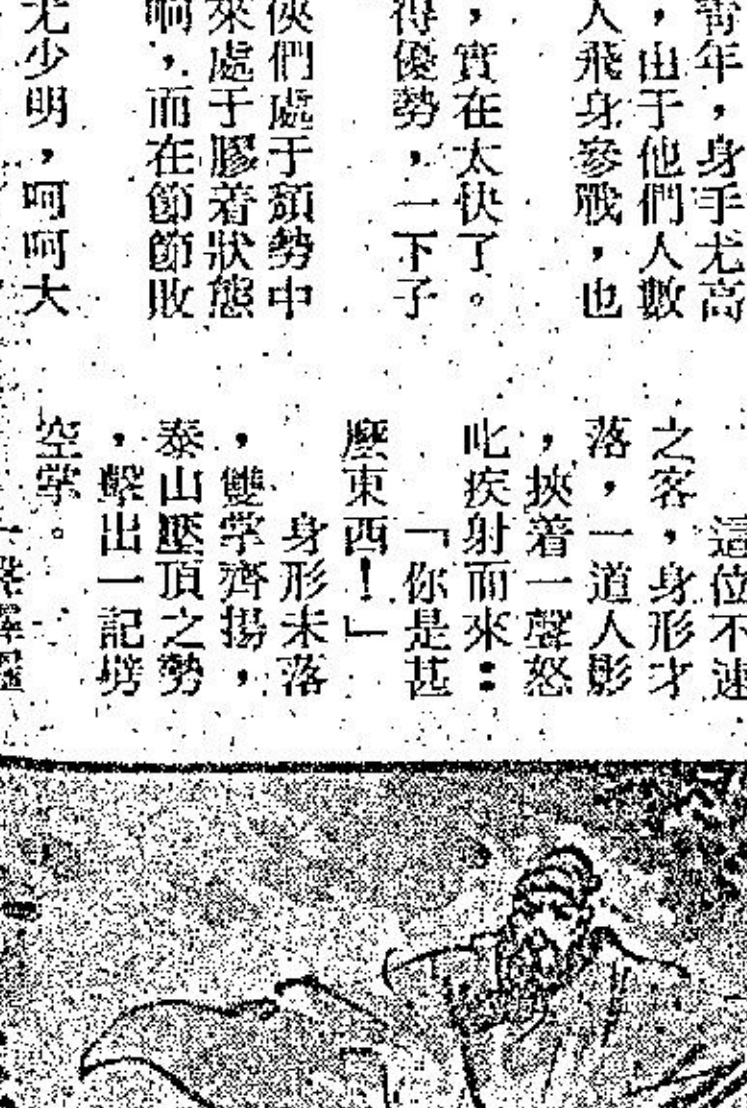 青年，身手尤高
，由于他們人數
人飛身參戰，也
，實在太快了。
得優勢，一下子
俠們處于頹勢中
來處于膠着狀態
啊，而在節節敗
尤少明，呵呵大
這位不速
之客，身形才
落，一道人影
，挾着一聲怒
叱疾射而來：
「你是甚
麼東西！」
身形未落
，雙掌齊揚，
泰山壓頂之勢
，擊出一記劈
空掌。
一聲